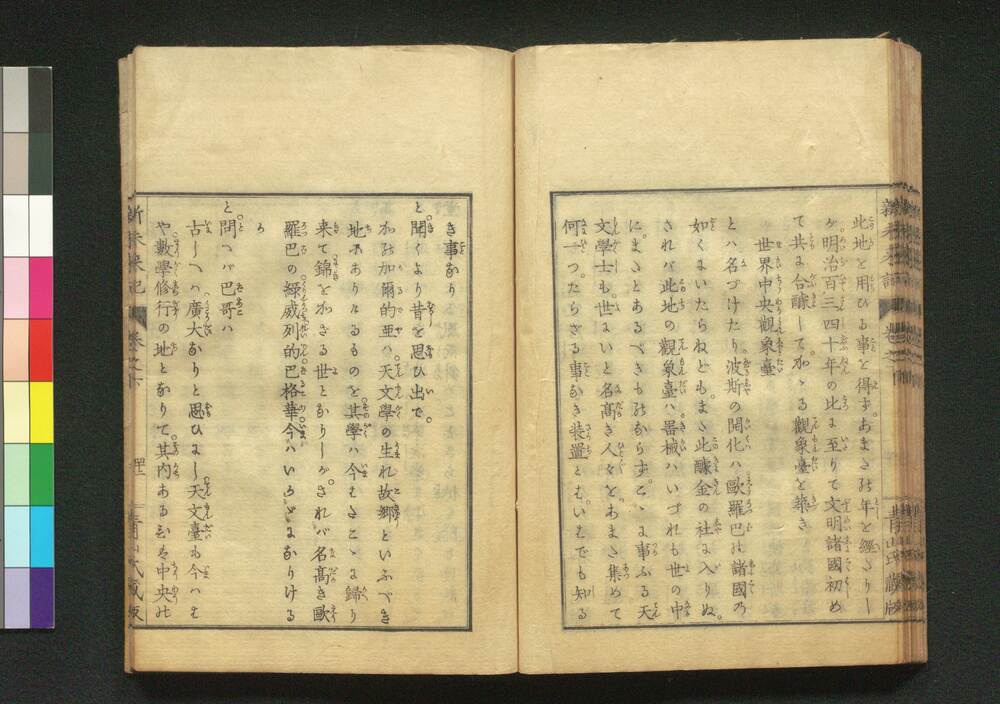 此地を用ひる事を得ず。あまたの年を經たりし
が明治百三四十年の比に至りて文明諸國初め
て共に合醵して。かゝる觀象臺を築き
世界中央觀象臺
とハ名づけたり波斯の開化ハ歐羅巴の諸國の
如くにいたらねども。また此醵金の社に入りぬ。
されバ此地の觀象臺ハ。器械ハいづれも世の中
にまたとあるべきものならず。こゝに事ふる天
文學士も。世にいと名高き人々を。あまた集めて
何一つ。たらざる事なき装置とぞ。いまでも知る
き事なり
と。聞くより昔を思ひ出で。
かの加爾的亜ハ。天文學の生れ故郷といふべき
地にありけるものを。其學ハ今またこゝに歸り
来て錦をかざる世となりしが。されバ名高き歐
羅巴の緑威列的巴格華今ハいかゞになりける
か
と。問へバ巴哥ハ
古しへハ廣大なりと思ひにし天文臺も今ハはや
數學修行の地となりて。其内あるひは中央の
新未来記
卷之下
青山氏藏版
新未来記
卷之下
青山氏藏版